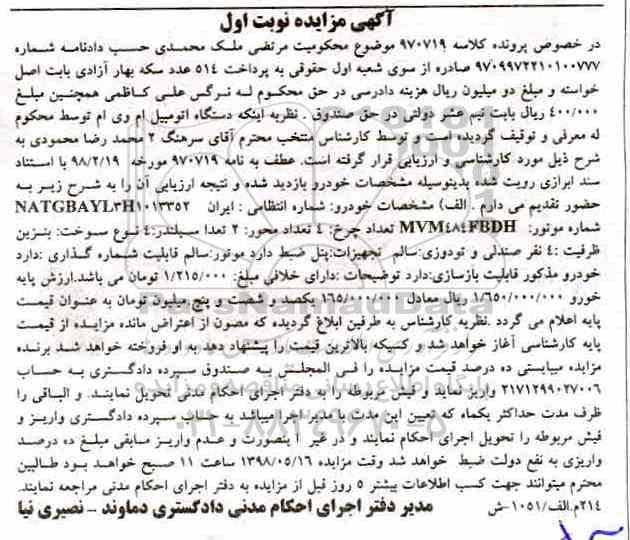 آگهی مزایده نوبت اول
در خصوص پرونده کلاسه ۹۷۰۷۱۹ موضوع محکومیت مرتضی ملک محمدی حسب دادنامه شماره
۹۷۰۹۹۷۲۲۱۰۱۰۰۷۷۷ صادره از سوی شعبه اول حقوقی به پرداخت ۵۱۴ عدد سکه بهار آزادی بابت اصل
خواسته و مبلغ دو میلیون ریال هزینه دادرسی در حق محکوم لـه نرگس علی کاظمی همچنین مبلغ
۴۰۰/۰۰۰ ریال بابت نیم عشر دولتی در حق صندوق . نظریه اینکه دستگاه اتومبیل ام وی ام توسط محکوم
له معرفی و توقیف گردیده است و توسط کارشناس منتخب محترم آقای سرهنگ ۲ محمد رضا محمودی به
شرح ذیل مورد کارشناسی و ارزیابی قرار گرفته است. عطف به نامه ۹۷۰۷۱۹ مورخه ۹۸/۲/۱۹ با استناد
سند ابرازی رویت شده بدینوسیله مشخصات خودرو بازدید شده و نتیجه ارزیابی آن را به شرح زیر به
حضور تقدیم می دارم . الف) مشخصات خودرو: شماره انتظامی : ایران NATGBAYL۳H۱۰۱۳۳۵۲
شماره موتور: MVM۴۸۴FBDH تعداد چرخ: ٤ تعداد محور: ۲ تعدا سیلندر:٤ نوع سوخت: بنزین
ظرفیت :٤ نفر صندلی و تودوزی:سالم تجهیزات:پنل ضبط دارد موتور:سالم قابلیت شماره گذاری :دارد
خودرو مذکور قابلیت بازسازی:دارد توضیحات :دارای خلافی مبلغ: ۱/۲۱۵/۰۰۰ تومان می باشد.ارزش پایه
خورو ۱/۶۵۰/۰۰۰/۰۰۰ ریال معادل ۱۶۵/۰۰۰/۰۰۰ یکصد و شصت و پنج میلیون تومان به عنوان قیمت
پایه اعلام می گردد .نظریه کارشناس به طرفین ابلاغ گردیده که مصون از اعتراض مانده مزایده از قیمت
پایه کارشناسی آغاز خواهد شد و کسیکه بالاترین قیمت را پیشنهاد دهد به او فروخته خواهد شد برنده
مزایده میبایستی ده درصد قیمت مزایده را فی المجلس به صندوق سپرده دادگستری به حساب
۲۱۷۱۲۹۹۰۲۷۰۰۶ واریز نماید و فیش مربوطه را به دفتر اجرای احکام مدنی تحویل نمایند. و الباقی را
ظرف مدت حداکثر یکماه که تعیین این مدت با مدیر اجرا میباشد به حساب سپرده دادگستری واریز و
فیش مربوطه را تحویل اجرای احکام نمایند و در غیر اینصورت و عدم واریز مابقی مبلغ ده درصد
واریزی به نفع دولت ضبط خواهد شد وقت مزایده ۱۳۹۸/۰۵/۱۶ ساعت ۱۱ صبح خواهد بود طالبین
محترم میتوانند جهت کسب اطلاعات بیشتر ۵ روز قبل از مزایده به دفتر اجرای احکام مدنی مراجعه نمایند.
۲۱۴م.الف/۱۰۵۱-ش مدیر دفتر اجرای احکام مدنی دادگستری دماوند - نصیری نیا
ParsNamadData
پایگاه اطلاع رسانی مناقصه و مزایده
۰۲۱-۸۸۳۴۹۶۷۰-۵